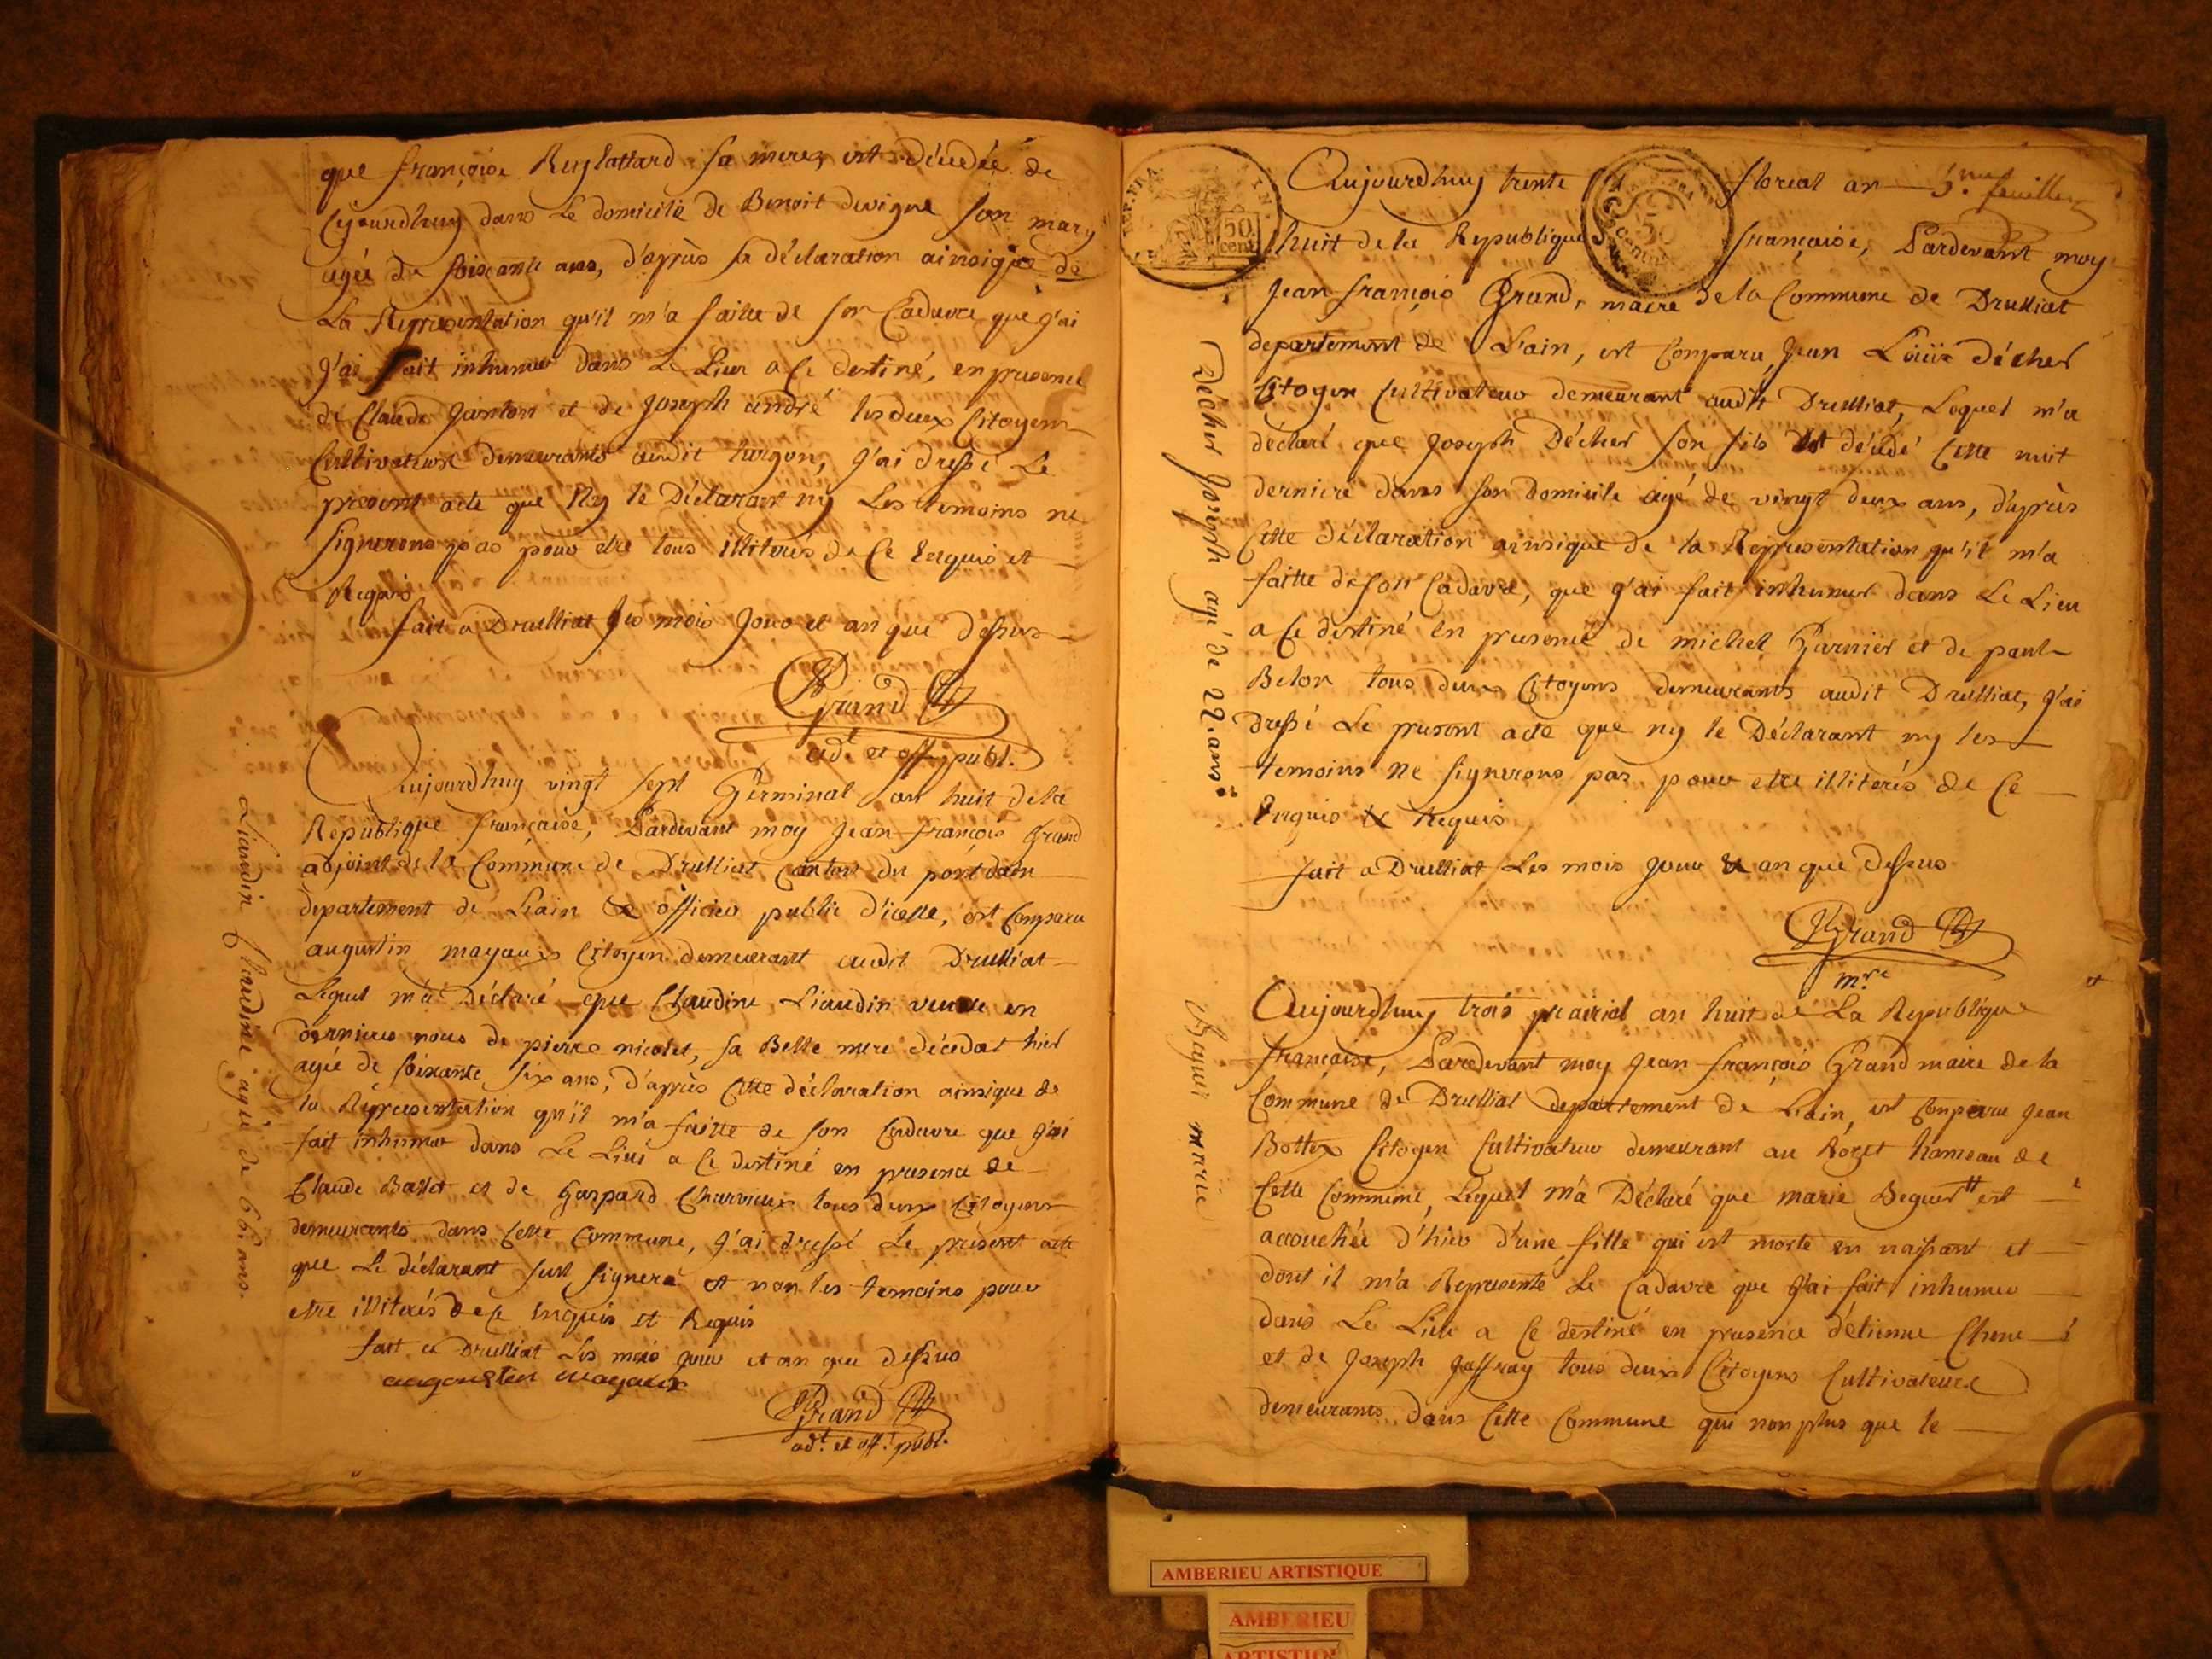 que françoise Ruylattard sa mere est décédée de
Cejourdhuy dans Le domicile de Benoit devigne son mary
agée de soixante ans, d'après sa déclaration ainsique de
La Representation qu'il m'a faitte de son Cadavre que j'ai
j'ai fait inhumer dans Le Lieu a Ce destiné, en presence
de Claude Janton et de Joseph andré les deux Citoyens
Cultivateurs demeurants audit turgon, j'ai dressé Le
present acte que Ny le Déclarant ny Les temoins ne
signerons pas pour etre tous illiterés de Ce Enquis et
Requis
fait a Druilliat les mois Jour et an que dessus
Grand
adt et off. publ.
Aujourdhuy vingt sept Germinal an huit de la
Republique française, Pardevant moy Jean françois Grand
adjoint de la Commune de Druilliat Canton du pont dain
departement de Lain & officier public d'icelle, est Comparu
augustin mayaux Citoyen demeurant audit Druilliat
Lequel m'a Déclaré que Claudine Liaudin veuve en
dernieres noces de pierre nicolet, sa Belle mere décédat hier
agée de soixante six ans, d'après Cette déclaration ainsique de
la Representation qu'il m'a faitte de son Cadavre que j'ai
fait inhumer dans Le Lieu a Ce destiné en presence de
Claude Ballet et de Gaspard Charvieux tous deux Citoyens
demeurants dans Cette Commune, j'ai dressé Le present acte
que Le déclarant seul signera et non les temoins pour
etre illiterés de Ce Enquis et Requis
fait a Druilliat Les mois jour et an que dessus
augoustin mayaux
Grand
adt. et off. publ.
Liaudin Claudine agée de 66 ans.
5.me feuillet
Aujourdhuy trente floreal an
REP. FRA.
50 cent
50
huit de la Republique française, Pardevant moy
Jean françois Grand, maire de la Commune de Druilliat
departement de L'ain, est Comparu Jean Loüis décher
Citoyen Cultivateur demeurant audit Druilliat, Lequel m'a
déclaré que Joseph Décher son fils est décédé Cette nuit
derniere dans son domicile agé de vingt deux ans, d'après
Cette déclaration ainsique de la Representation qu'il m'a
faitte de son Cadavre, que j'ai fait inhumer dans Le Lieu
a Ce destiné en presence de michel Garnier et de paul
Belon tous deux Citoyens demeurants audit Druilliat, j'ai
dressé Le present acte que ny le Déclarant ny les
temoins ne signerons pas pour etre illiterés de Ce
Enquis & Requis
fait a Druilliat Les mois jour & an que dessus
Grand
m.re
Décher Joseph agé de 22 ans.
Aujourdhuy trois prairial an huit de La Republique
française, Pardevant moy Jean françois Grand maire de la
Commune de Druilliat departement de Lain, est Comparu Jean
Bottex Citoyen Cultivateur demeurant au Rozet hameau de
Cette Commune, Lequel m'a Déclaré que marie Beguet est
accouchée d'hier d'une fille qui est morte en naissant et
dont il m'a Representé Le Cadavre que j'ai fait inhumer
dans Le Lieu a Ce destiné en presence d'étienne Chene
et de Joseph Joffray tous deux Citoyens Cultivateurs
demeurants dans Cette Commune qui non plus que le
marie
AMBERIEU ARTISTIQUE
AMBERIEU
ARTISTIQ